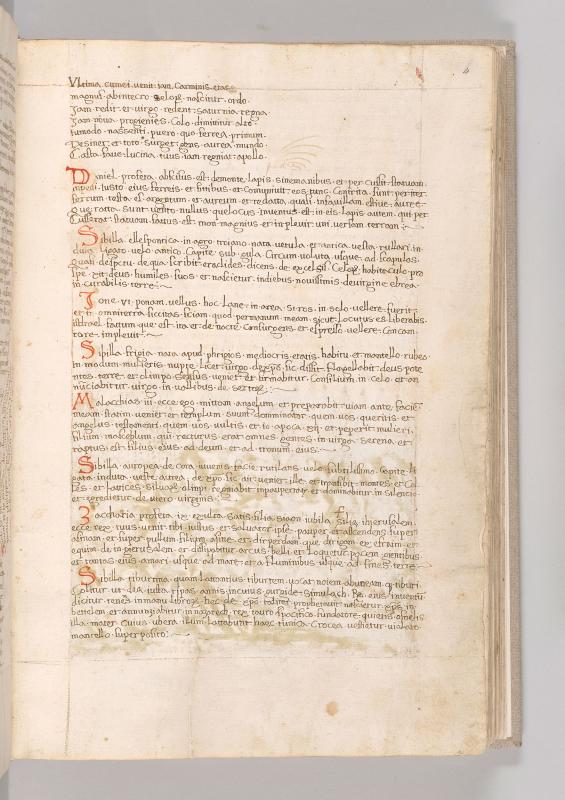 4
Vltima cumei venit iam Carminis etas
magnus ab integro selor nascitur ordo
Iam redit et virgo redent Saturnia regna
Iam nova progenies Celo dimittitur alto
tu modo nassenti puero quo ferrea primum
Desinet et toto surget gens aurea mundo
Casta fave lucina tuus iam regnat apollo
Daniel profeta abscisus est de monte lapis sine manibus et percussit statuam
in pedi iusto eius ferreis et fittibus et Comynuit eos tunc Contrita sunt pariter
ferrum testa es argentum et aureum et redatto quasi in favillam estive
que ratta sunt vento nullus que locus inventus est in eis lapis autem qui per
Cusserat statuam fatus est mon magnus et inplevit universam terram
Sibilla ellespontica in agro troiano nata vetula et antica vesta rullari in
duta ligato velo antico Capite sub gula Circum voluta usque ad scapulas
quasi despetu de qua scribit eraclides dicens de excelsis Celor habitaculo pro
spe xit deus humiles suos et nascietur in diebus novissimis de virgine ebrea
in curabilis terre
Ione vi ponam vellus hoc lane in area si ros in solo vellere fuerit
et in omni terra siccitas sciam quod per manum meam sicut locutus es liberabis
isdrael fattum que est ita et de nocte Consurgens et espresso vellere Concam
rore implevit
Sibilla frigia nata apud phrigios mediocris etatis habitu et mantello rubeo
in modum mulieris nupte licet virgo de xps sic dissit flagellabit deus pote
ntes terre et olimpo Celsus veniet et firmabitur Consilium in celo et an
nunciabitur virgo in vallibus desertor
Malacchias iii ecce ego mittam angelum et preparabit viam ante facie
meam statim veniet et templum suum domminator quem vos queritis et
angelus testamenti quem vos vultis et io apoca xii et peperit mulier
filium masculum qui recturus erat omnes gentes in virga ferrea et
raptus est filius eius ad deum et ad tronum eius
Sibilla auropea de cora iuvenis facie rutilans velo subtilissimo Capite li
gata induta veste aurea de xpo sic ait veniet ille et transibit montes et col
les et latices silvar olimpi regnabit in paupertate et dominabitur in silencio
et egredietur de utero virginis
Zaccharia profeta ix exulta satis filia siaon iubila filia ierusalem
ecce rex tuus venit tibi iustus et salvator ipse pauper et assendens super
asinam et super pullum filium asine et disperdam quadrigam ex efraim et
equum de ierusalem et dissipabitur arcus belli et loquetur pacem gentibus
et potestas eius a mari usque ad mare et a fluminibus usque ad fines terre
Sibilla tiburtina quam lattantius tiburtem vocat noiem abuneam q tiburi
Colitur ut dea iuxta ripas annis in cuius gurgide simulach
dicitur tenens in manu librum hec de xpo taliter prophetavit nascetur xps in
betelem et annunziabitur in nazareth rege tauro pacifico fundatore quietis o felis
illa mater Cuius ubera illum lattabunt haec tunica Crocea vestitur violato
mantello super posito